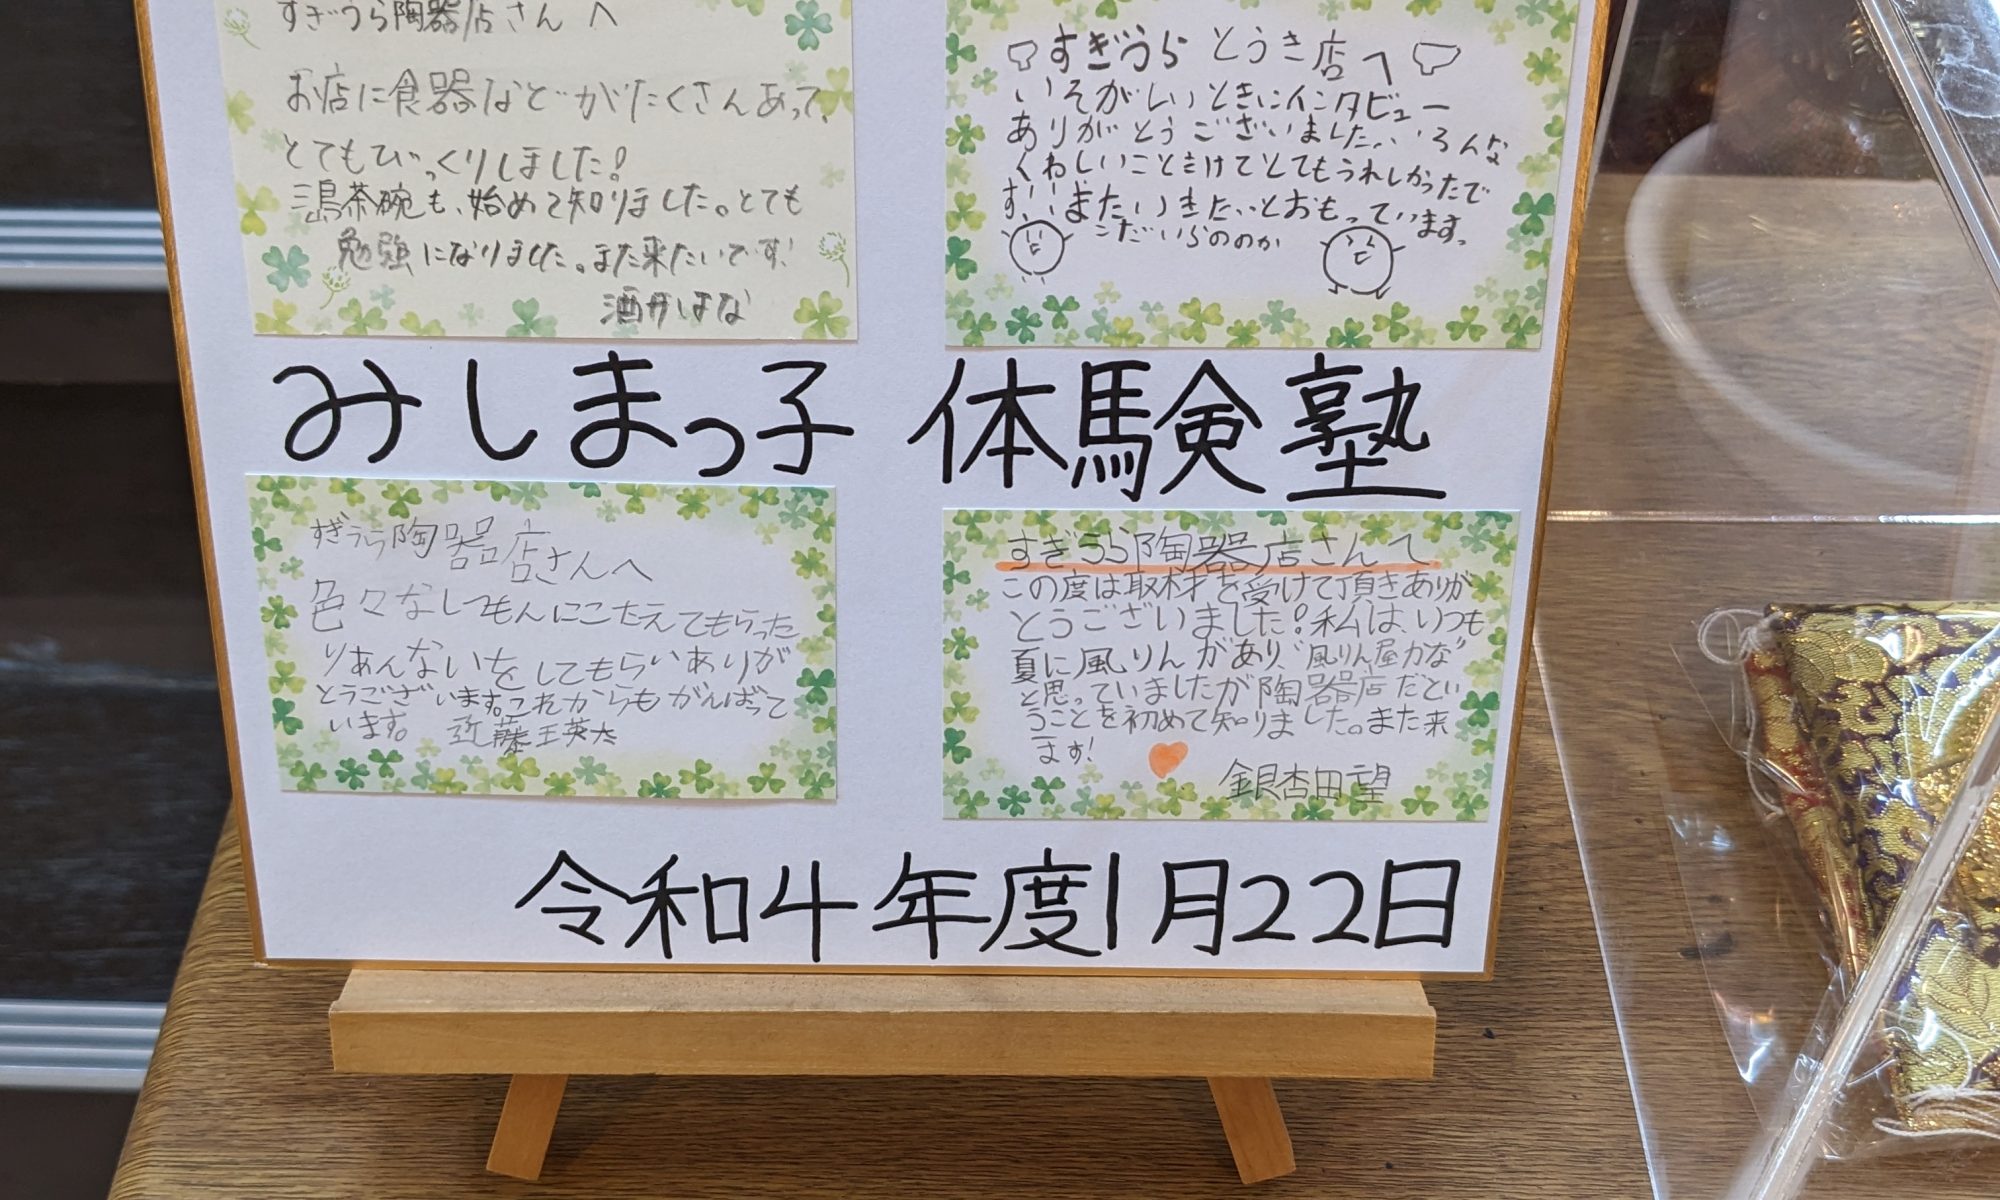 すぎうら陶器店さんへ
お店に食器などがたくさんあって、
とてもびっくりしました!
三島茶碗も、始めて知りました。とても
勉強になりました。また来たいです!
酒井はな
すぎうらとうき店へ
いそがしいときにインタビュー
ありがとうございました。いろんな
くわしいこときけてとてもうれしかったで
す。またいきたいとおもっています。
こだいらののか
みしまっ子 体験塾
すぎうら陶器店さんへ
色々なしつもんにこたえてもらった
りあんないをしてもらいありが
とうございます。これからもがんばって
います。 近藤王英太
すぎうら陶器店さんへ
この度は取材を受けて頂きありが
とうございました!私は、いつも
夏に風りんがあり、"風りん屋かな"
と思っていましたが陶器店だとい
うことを初めて知りました。また来
ます!
銀杏田望
令和4年度1月22日